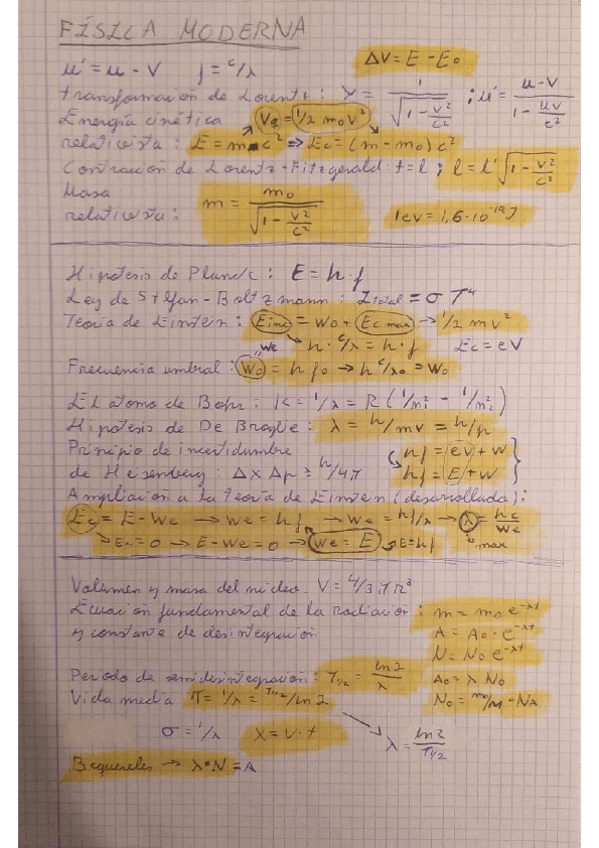 FÍSICA MODERNA
ΔV = E - E₀
u' = u - v f = c/λ
transformación de Lorentz: γ = 1/√(1 - v²/c²) ; u' = (u - v)/(1 - uv/c²)
Energía cinética Vq = 1/2 m₀v²
relativista: E = m·c² ⇒ Ec = (m - m₀)c²
Contracción de Lorentz-Fitzgerald t = l ; l = l'√(1 - v²/c²)
Masa
relativista: m = m₀/√(1 - v²/c²) 1ev = 1,6·10⁻¹⁹J
Hipótesis de Planck: E = h·f
Ley de Stefan-Boltzmann: Itotal = σ T⁴
Teoría de Einstein: Einc = W₀ + Ec max → 1/2 mv²
We h·c/λ = h·f Ec = eV
Frecuencia umbral: W₀ = h f₀ → h c/λ₀ = W₀
El átomo de Bohr: K = 1/λ = R(1/n₁² - 1/n₂²)
Hipótesis de De Broglie: λ = h/mv = h/p
Principio de incertidumbre hf = ev + w
de Heisenberg: Δx Δp ≥ h/4π hf = E + w
Ampliación a la teoría de Einstein (desarrollada):
Ec = E - We → We = hf → We = hf/λ → λ = hc/We
Ec = 0 → E - We = 0 → We = E E = hf max
Volumen y masa del núcleo: V = 4/3 π R³
Ecuación fundamental de la Radiación: m = m₀ e^-λt
y constante de desintegración A = A₀ · e^-λt
N = N₀ e^-λt
Periodo de semidesintegración: T1/2 = ln2/λ A₀ = λ N₀
Vida media π = 1/λ = T1/2/ln2 N₀ = m₀/M · NA
σ = 1/λ X = v·t λ = ln2/T1/2
Bequereles → λ·N = A